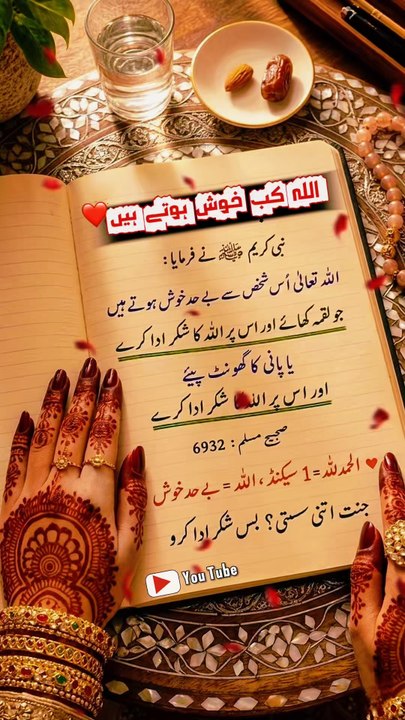 اللہ کب خوش ہوتے ہیں
نبی کریم ﷺ نے فرمایا :
اللہ تعالیٰ اُس شخص سے بے حد خوش ہوتے ہیں
جو لقمہ کھائے اور اس پر اللہ کا شکر ادا کرے
یا پانی کا گھونٹ پیئے
اور اس پر اللہ کا شکر ادا کرے
صحیح مسلم : 6932
♥ الحمدللہ = 1 سیکنڈ ، اللہ = بے حد خوش
جنت اتنی سستی؟ بس شکر ادا کرو
You Tube